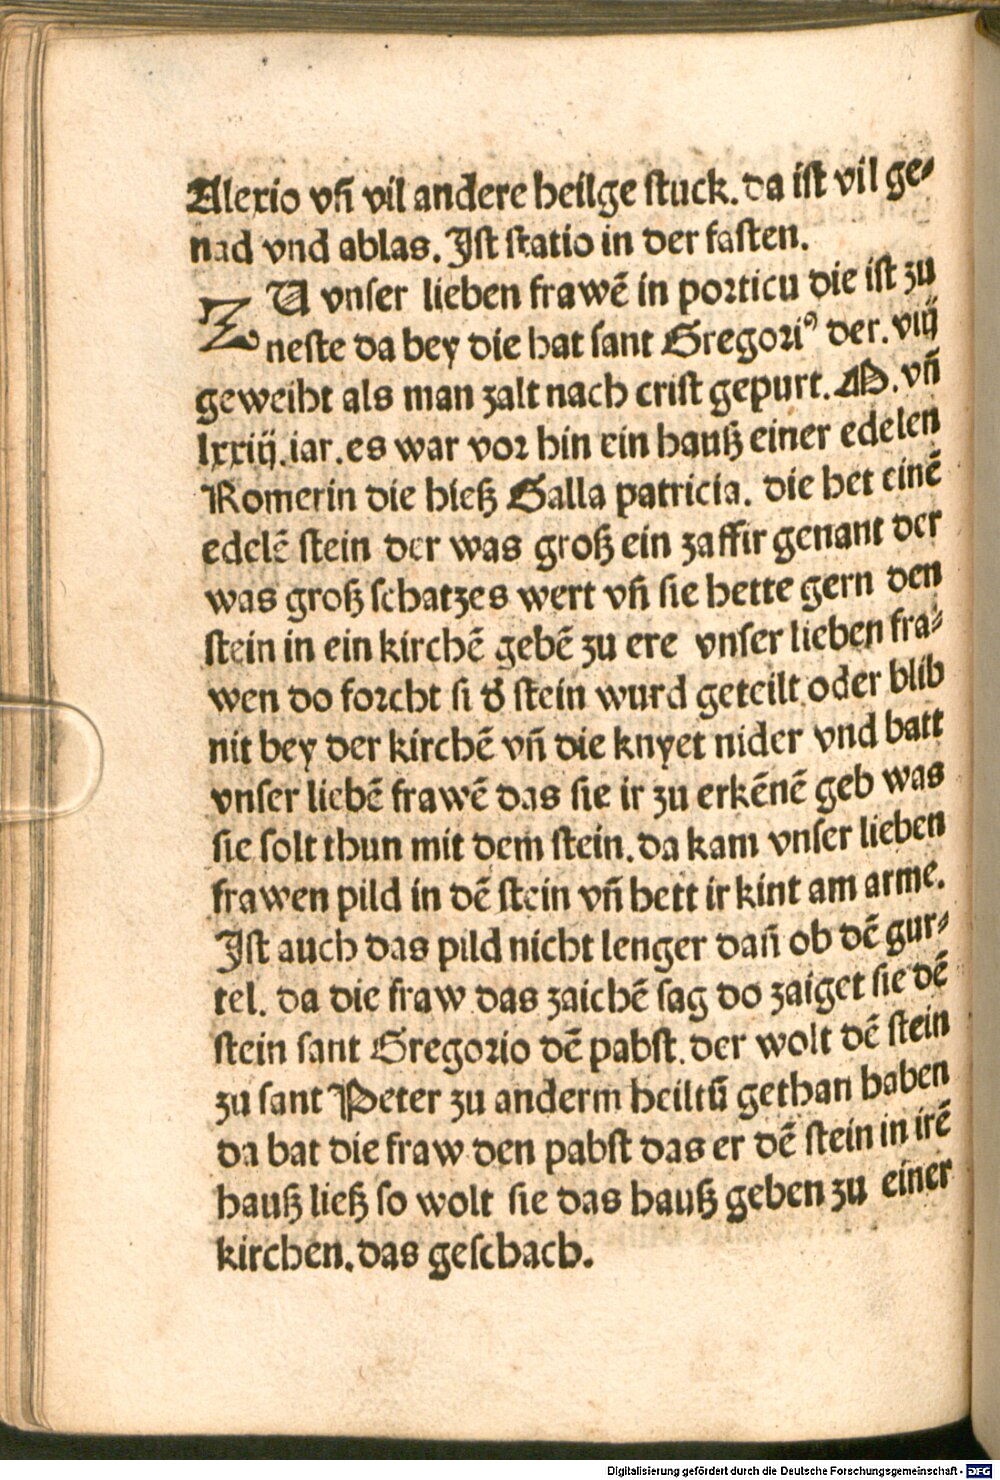 Alexio vn̄ vil andere heilge stuck. da ist vil ge⸗
nad vnd ablas. Ist statio in der fasten.
ZU vnser lieben frawē in porticu die ist zu
neste da bey die hat sant Gregoriꝰ der. viij
geweiht als man zalt nach crist gepurt. M. vn̄
lxxiij. iar. es war vor hin ein hauß einer edelen
Romerin die hieß Galla patricia. die het einē
edelē stein der was groß ein zaffir genant der
was groß schatzes wert vn̄ sie hette gern den
stein in ein kirchē gebē zu ere vnser lieben fra⸗
wen do forcht si d̕ stein wurd geteilt oder blib
nit bey der kirchē vn̄ die knyet nider vnd batt
vnser liebē frawē das sie ir zu erkēnē geb was
sie solt thun mit dem stein. da kam vnser lieben
frawen pild in dē stein vn̄ hett ir kint am arme.
Ist auch das pild nicht lenger dan̄ ob dē gur⸗
tel. da die fraw das zaichē sag do zaiget sie dē
stein sant Gregorio dē pabst. der wolt dē stein
zu sant Peter zu anderm heiltū gethan haben
da bat die fraw den pabst das er dē stein in irē
hauß ließ so wolt sie das hauß geben zu einer
kirchen. das geschach.
Digitalisierung gefördert durch die Deutsche Forschungsgemeinschaft - DFG